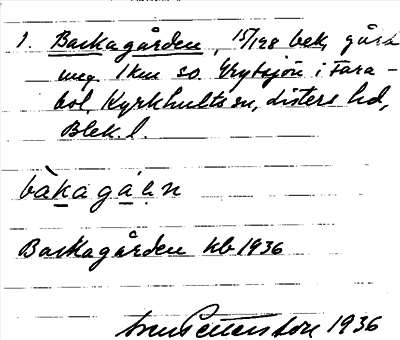 1. Backagården, 15/128 bek, gård
1 km so. Grytsjön i Fara-
bol, Kyrkhults sn, Listers hd,
Blek. l.
bàkagá:n
Backagården kb 1936
Sven Petersson 1936